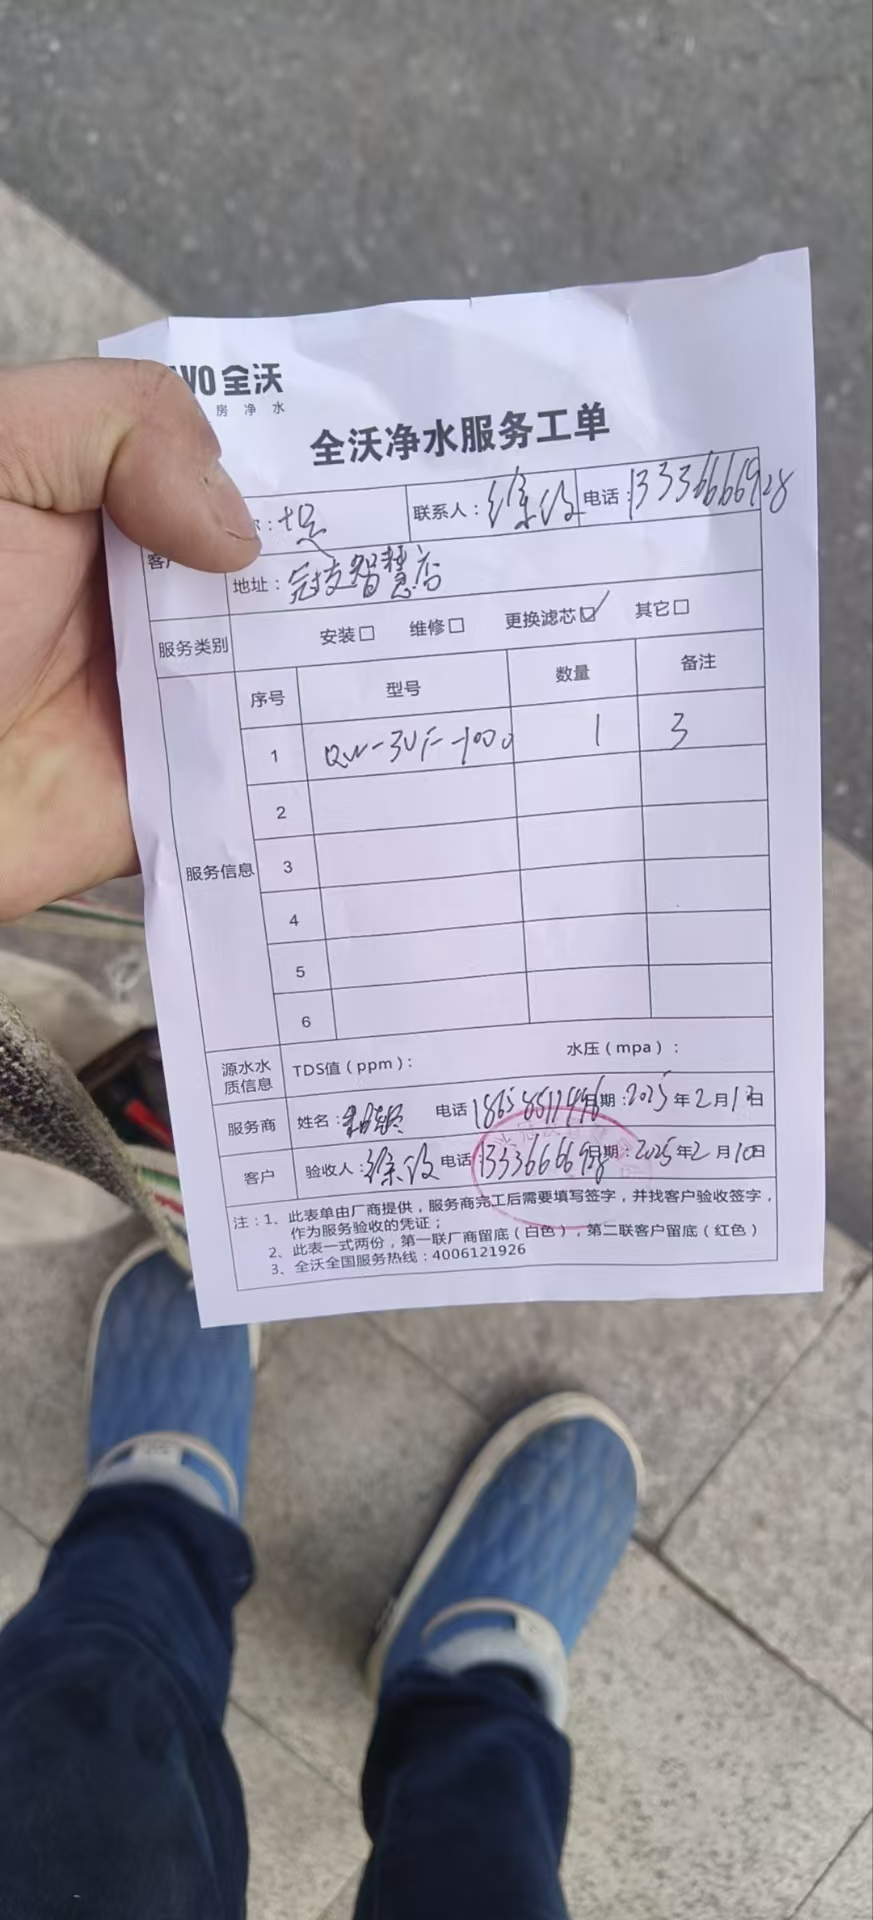 VO 全沃
房净水
全沃净水服务工单
联系人：徐 电话：13336666928
地址： 智慧店
服务类别 安装□ 维修□ 更换滤芯☑ 其它□
序号 型号 数量 备注
1 QW-3UF-1000 1 3
2
3
4
5
6
服务信息
源水水质信息 TDS值（ppm）： 水压（mpa）：
服务商 姓名： 电话 期：2025年2月1 日
客户 验收人：徐 电话：13336666928 期：2025年2月10日
注：1、此表单由厂商提供，服务商完工后需要填写签字，并找客户验收签字，
作为服务验收的凭证；
2、此表一式两份，第一联厂商留底（白色），第二联客户留底（红色）
3、全沃全国服务热线：4006121926